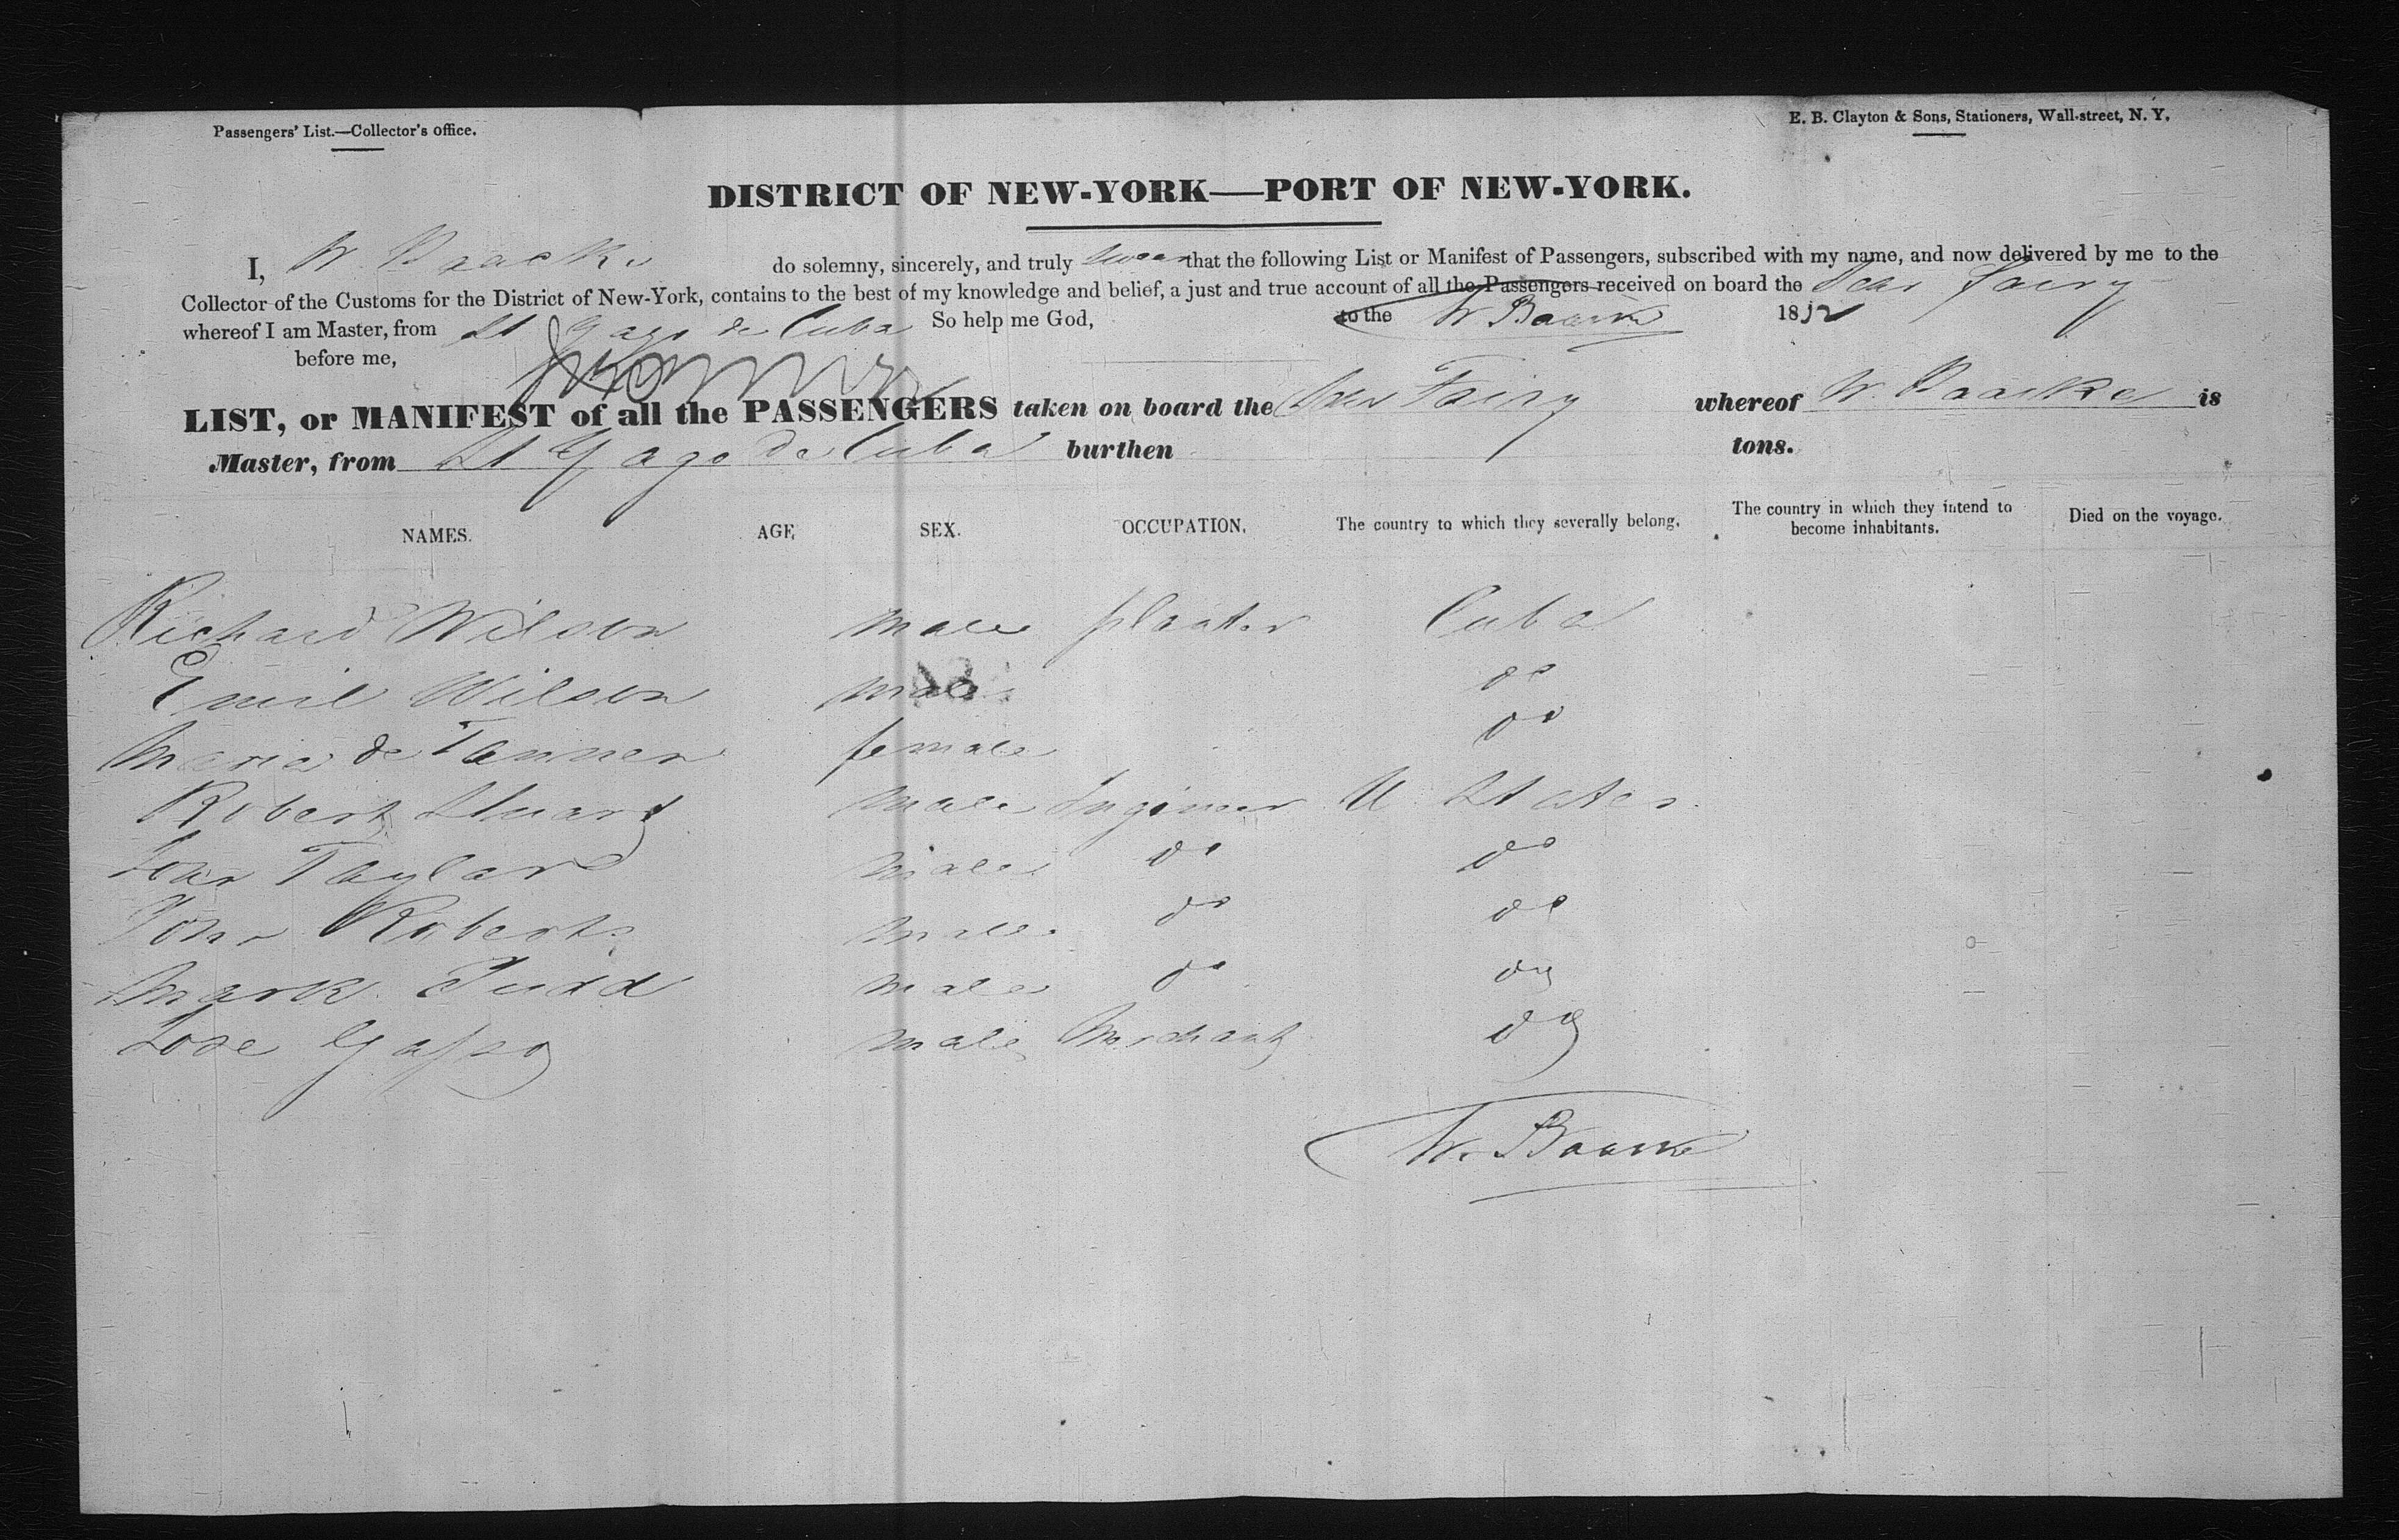 Passengers' List.—Collector's office.
E. B. Clayton & Sons, Stationers, Wall-street, N. Y.
DISTRICT OF NEW-YORK—PORT OF NEW-YORK.
I, W. Baacke do solemny, sincerely, and truly swear that the following List or Manifest of Passengers, subscribed with my name, and now delivered by me to the
Collector of the Customs for the District of New-York, contains to the best of my knowledge and belief, a just and true account of all the Passengers received on board the Schr Fairy
whereof I am Master, from St Yago de Cuba So help me God, to the W. Baacke 1852
before me,
LIST, or MANIFEST of all the PASSENGERS taken on board the Schr Fairy whereof W. Baacke is
Master, from St Yago de Cuba burthen tons.
NAMES. AGE, SEX. OCCUPATION. The country to which they severally belong. The country in which they intend to become inhabitants. Died on the voyage.
Richard Wilson male planter Cuba
Emil Wilson male do
Maria de Tanner female do
Robert Stuart male Engineer U. States
Taylor male do do
John Roberts male do do
Mark Judd male do do
Jose male Merchant do
W. Baacke